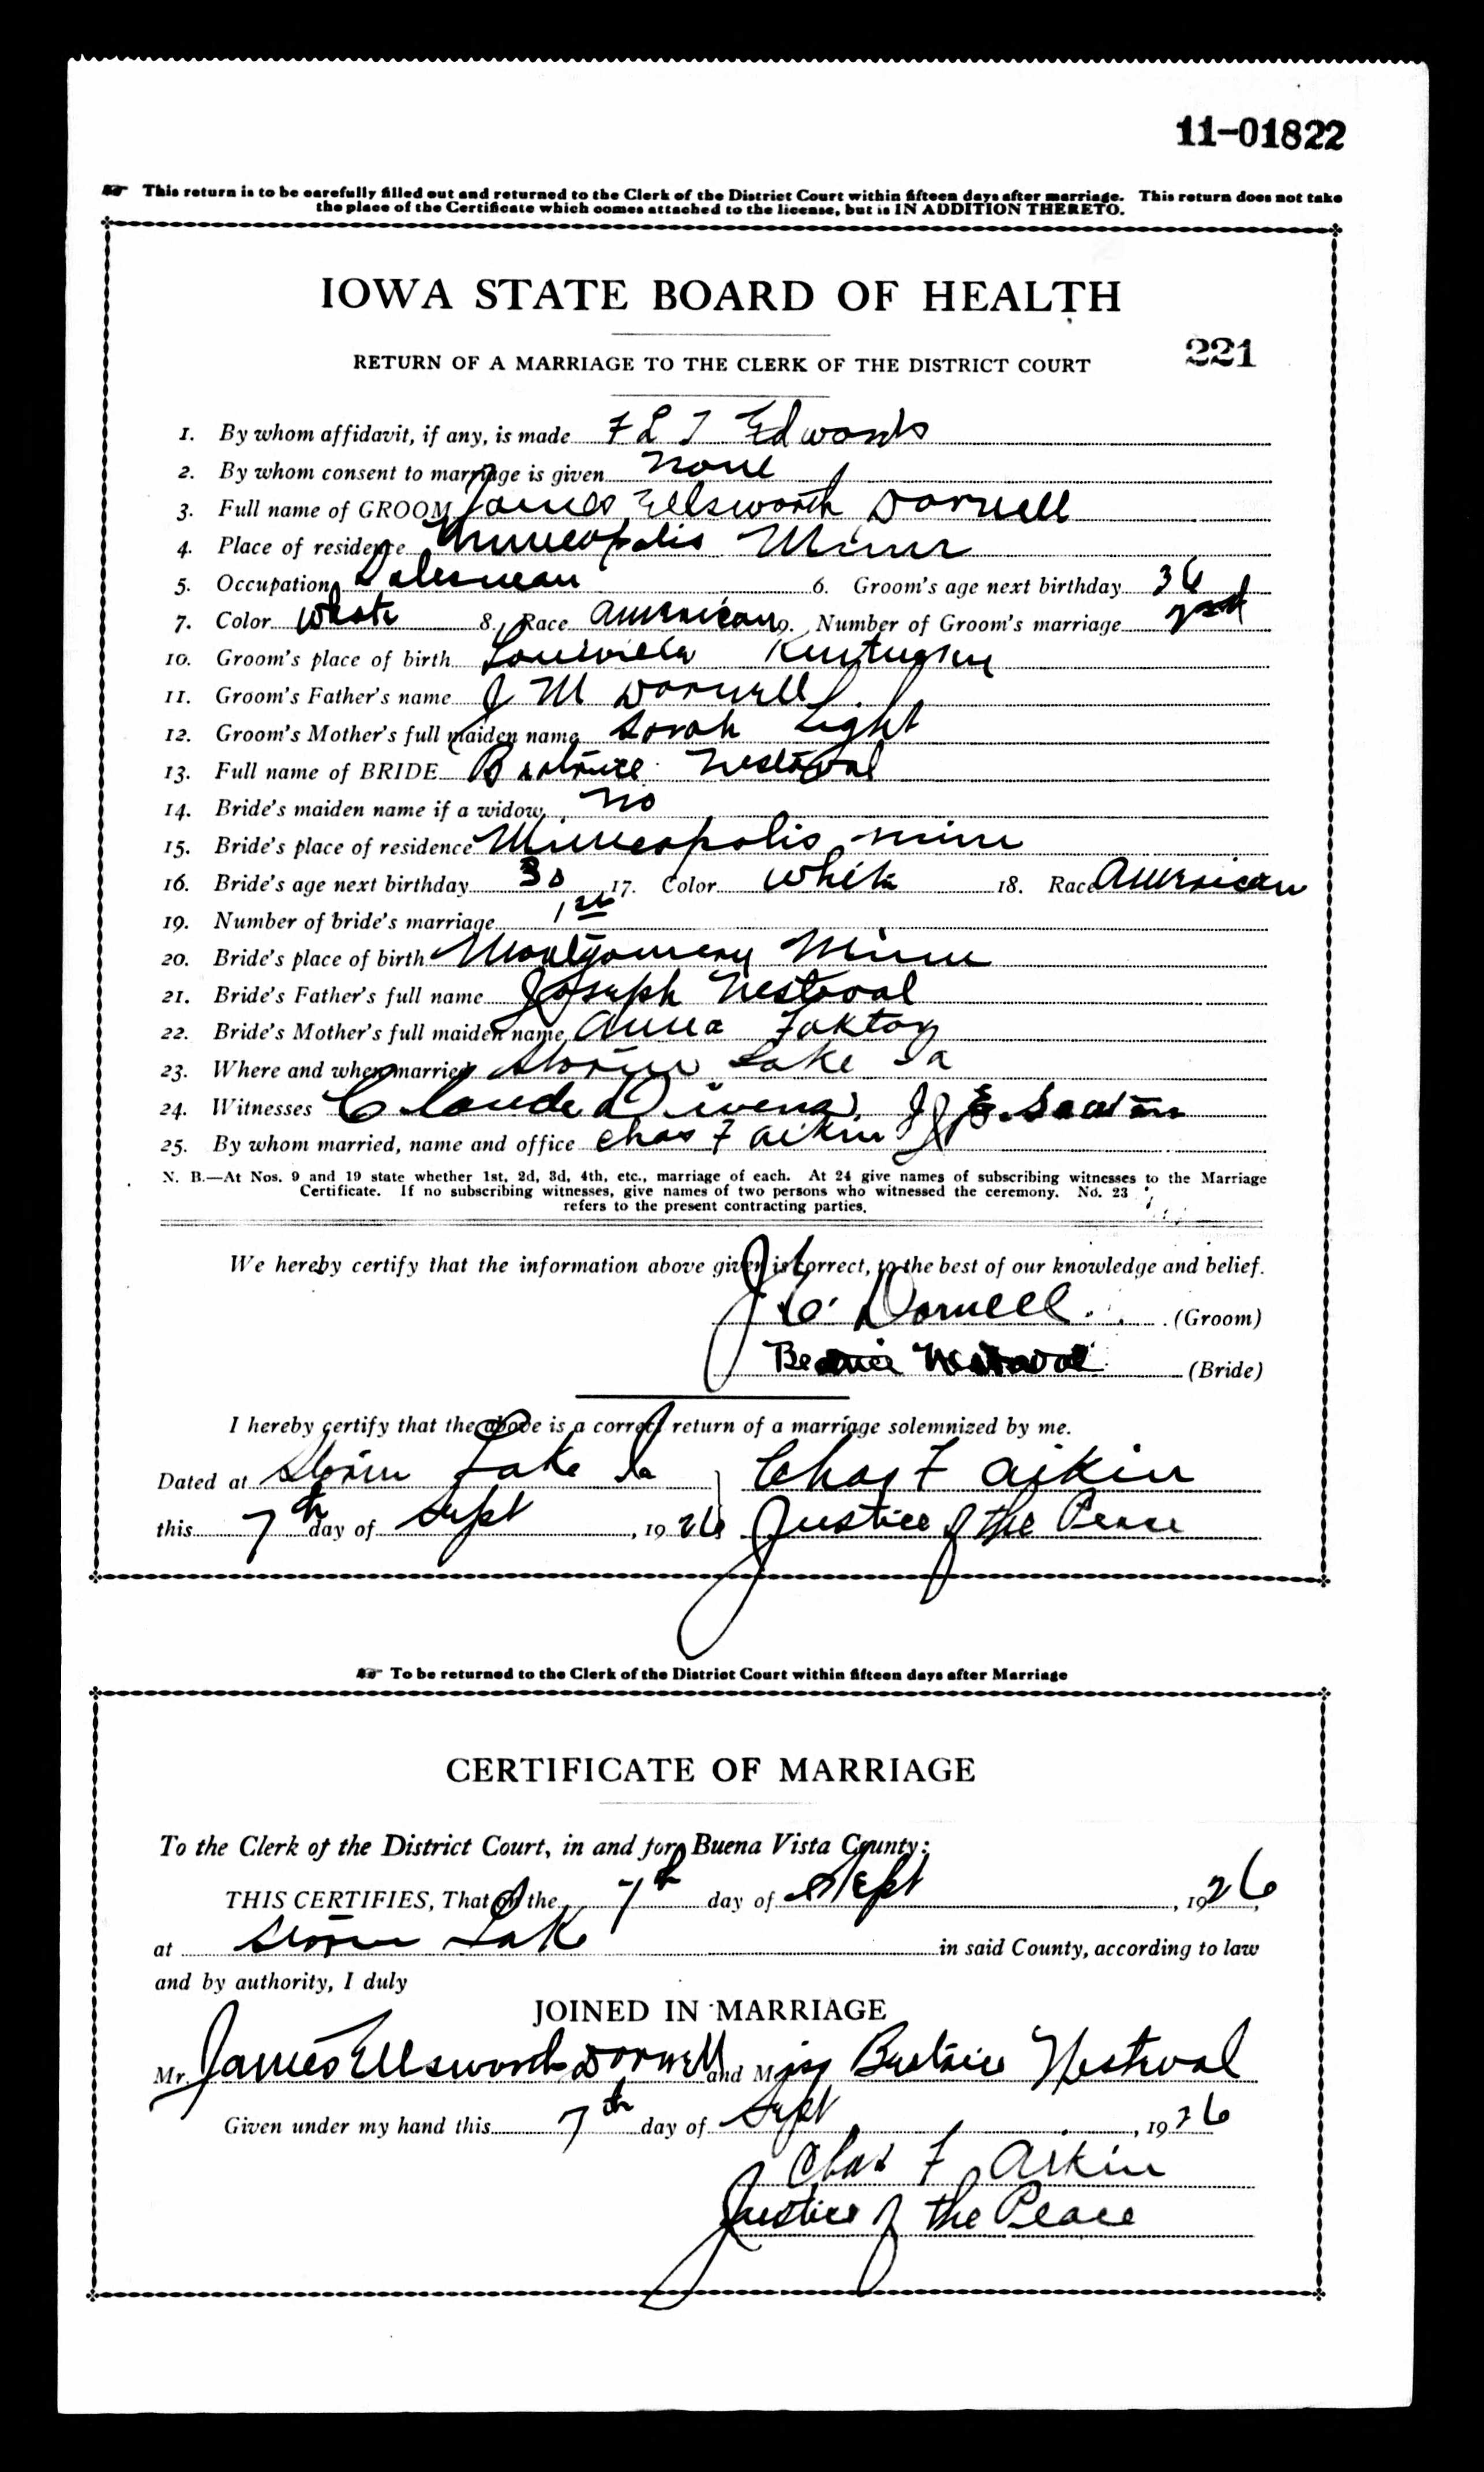 11-01822
This return is to be carefully filled out and returned to the Clerk of the District Court within fifteen days after marriage. This return does not take
the place of the Certificate which comes attached to the license, but is IN ADDITION THERETO.
IOWA STATE BOARD OF HEALTH
RETURN OF A MARRIAGE TO THE CLERK OF THE DISTRICT COURT 221
1. By whom affidavit, if any, is made F L T Edwards
2. By whom consent to marriage is given None
3. Full name of GROOM James Ellsworth Dornell
4. Place of residence Minneapolis Minn
5. Occupation Salesman 6. Groom's age next birthday 36
7. Color White 8. Race American 9. Number of Groom's marriage 2nd
10. Groom's place of birth Louisville Kentucky
11. Groom's Father's name J M Dornell
12. Groom's Mother's full maiden name Sarah Light
13. Full name of BRIDE Beatrice Nestaval
14. Bride's maiden name if a widow No
15. Bride's place of residence Minneapolis Minn
16. Bride's age next birthday 30 17. Color White 18. Race American
19. Number of bride's marriage 1st
20. Bride's place of birth Montgomery Minn
21. Bride's Father's full name Joseph Nestaval
22. Bride's Mother's full maiden name Anna Foktor
23. Where and when married Storm Lake Ia
24. Witnesses Claude
25. By whom married, name and office Chas F Aikin J P
N. B.—At Nos. 9 and 19 state whether 1st, 2d, 3d, 4th, etc., marriage of each. At 24 give names of subscribing witnesses to the Marriage
Certificate. If no subscribing witnesses, give names of two persons who witnessed the ceremony. No. 23
refers to the present contracting parties.
We hereby certify that the information above given is correct, to the best of our knowledge and belief.
J E Dornell (Groom)
Beatrice Nestaval (Bride)
I hereby certify that the above is a correct return of a marriage solemnized by me.
Dated at Storm Lake Ia Chas F Aikin
this 7th day of Sept, 1926 Justice of the Peace
To be returned to the Clerk of the District Court within fifteen days after Marriage
CERTIFICATE OF MARRIAGE
To the Clerk of the District Court, in and for Buena Vista County:
THIS CERTIFIES, That on the 7th day of Sept, 1926
at Storm Lake in said County, according to law
and by authority, I duly
JOINED IN MARRIAGE
Mr. James Ellsworth Dornell and Miss Beatrice Nestaval
Given under my hand this 7th day of Sept, 1926
Chas F Aikin
Justice of the Peace